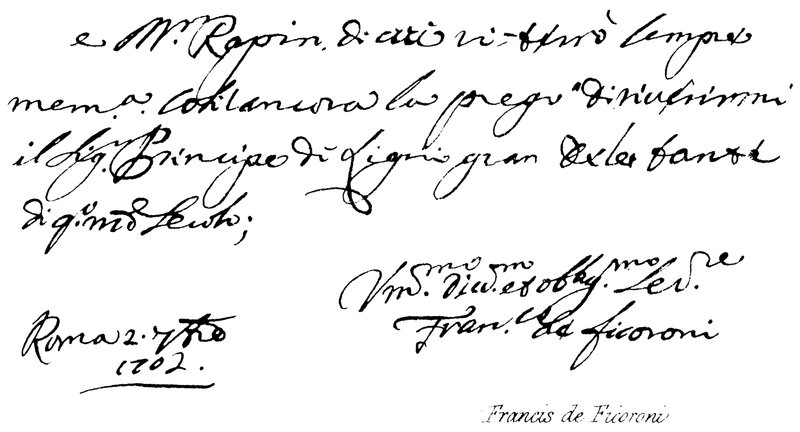 e Mr. Rapin. di cui vi sterò sempre
mem.a. Così ancora la prego di
il Sig.r Principe di Ligni gran
di q.o mõ secolo;
Vm.mo div.mo et obblig.mo Ser.re
Fran.co de ficoroni
Roma 2. 7bre
1702.
Francis de Ficoroni